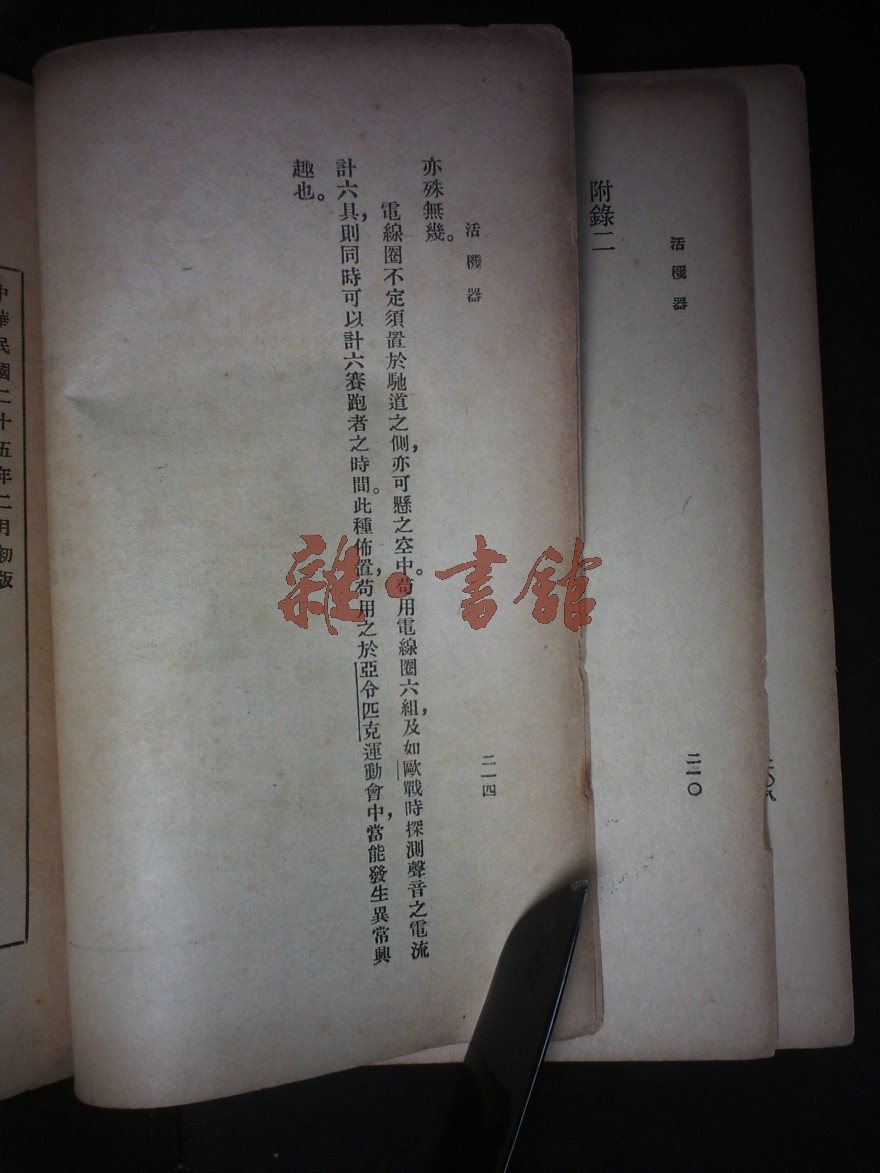 活機器
附錄二
二一〇
活機器
二一四
亦殊無幾。
電線圈不定須置於馳道之側，亦可懸之空中。苟用電線圈六組，及如歐戰時探測聲音之電流
計六具，則同時可以計六賽跑者之時間。此種佈置，苟用之於亞令匹克運動會中，當能發生異常興
趣也。
中華民國二十五年二月初版
雜·書館